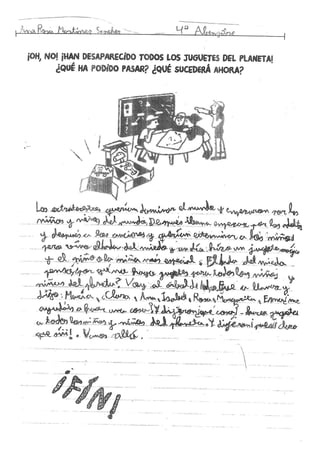 Ana Rosa Martínez Sánchez 4º
¡OH, NO! ¡HAN DESAPARECIDO TODOS LOS JUGUETES DEL PLANETA!
¿QUÉ HA PODIDO PASAR? ¿QUÉ SUCEDERÁ AHORA?
Los extraterrestres querían dominar el mundo y empezaron por los
niños y niñas del mundo. Después iban a empezar por los
y después a los ancianos y querían exterminar a los niños
pero vino el hada del miedo y un día hizo un juguete mágico
y el niño o la niña más especial. El hada del miedo
pensó, ¿por qué no hago juguetes para todos los niños y
niñas del planeta? Voy al árbol de fue a llamar y
dijo: María, Clara, Ana, Isabel, Rosa, Margarita,
ayudáis a hacer una cosa? Y dijeron ¿qué cosa? - hacer juguetes
a todos los niños y niñas del planeta. Y dijeron: pues claro
que sí!. Vamos allá.
¡FIN!